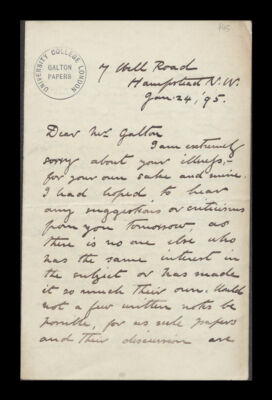 UNIVERSITY COLLEGE LONDON
GALTON
PAPERS
7 Well Road
Hampstead N.W.
Jan. 24, '95.
Dear Mr Galton
I am extremely
sorry about your illness,-
for your own sake and mine.
I had hoped to hear
any suggestions or criticisms
from you tomorrow, as
there is no one else who
has the same interest in
the subject or has made
it so much their own. Would
not a few written notes be
possible, for as rule papers
and their discussion are